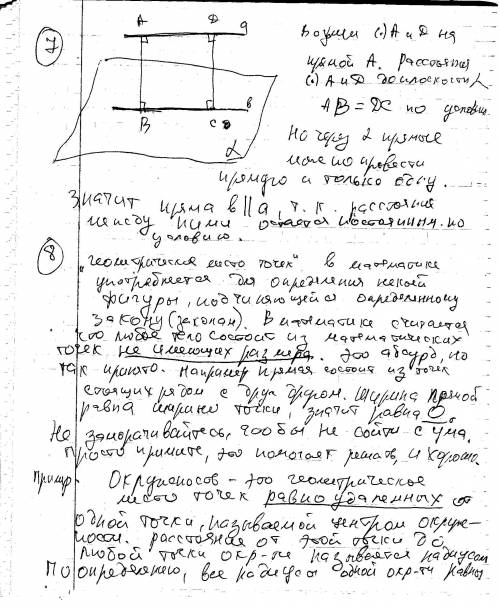 7
A D a
B C в
α
Возьми (·) A и D на
прямой A. Расстояния
(·) A и D до плоскости α
AB = DC по условию
Но через 2 прямые
можно провести
прямую и только одну.
Значит пряма в || a, т.к. расстояние
между ними остается постоянным по
условию.
8
"геометрическое место точек" в математике
употребляется для определения некой
фигуры, подчиняющейся определенному
закону (законам). В математике считается
что любое тело состоит из математических
точек не имеющих размера. Это абсурд, но
так принято. Например прямая состоит из точек
стоящих рядом с друг другом. Ширина прямой
равна ширине точки, значит равна 0.
Не заморачивайтесь, чтобы не сойти с ума.
Просто примите, это помогает решать, и хорошо.
Пример. Окружность - это геометрическое
место точек равно удаленных от
одной точки, называемой центром окруж-
ности. расстояние от этой точки до
любой точки окр-ти называется радиусом
По определению, все радиусы одной окр-ти равны